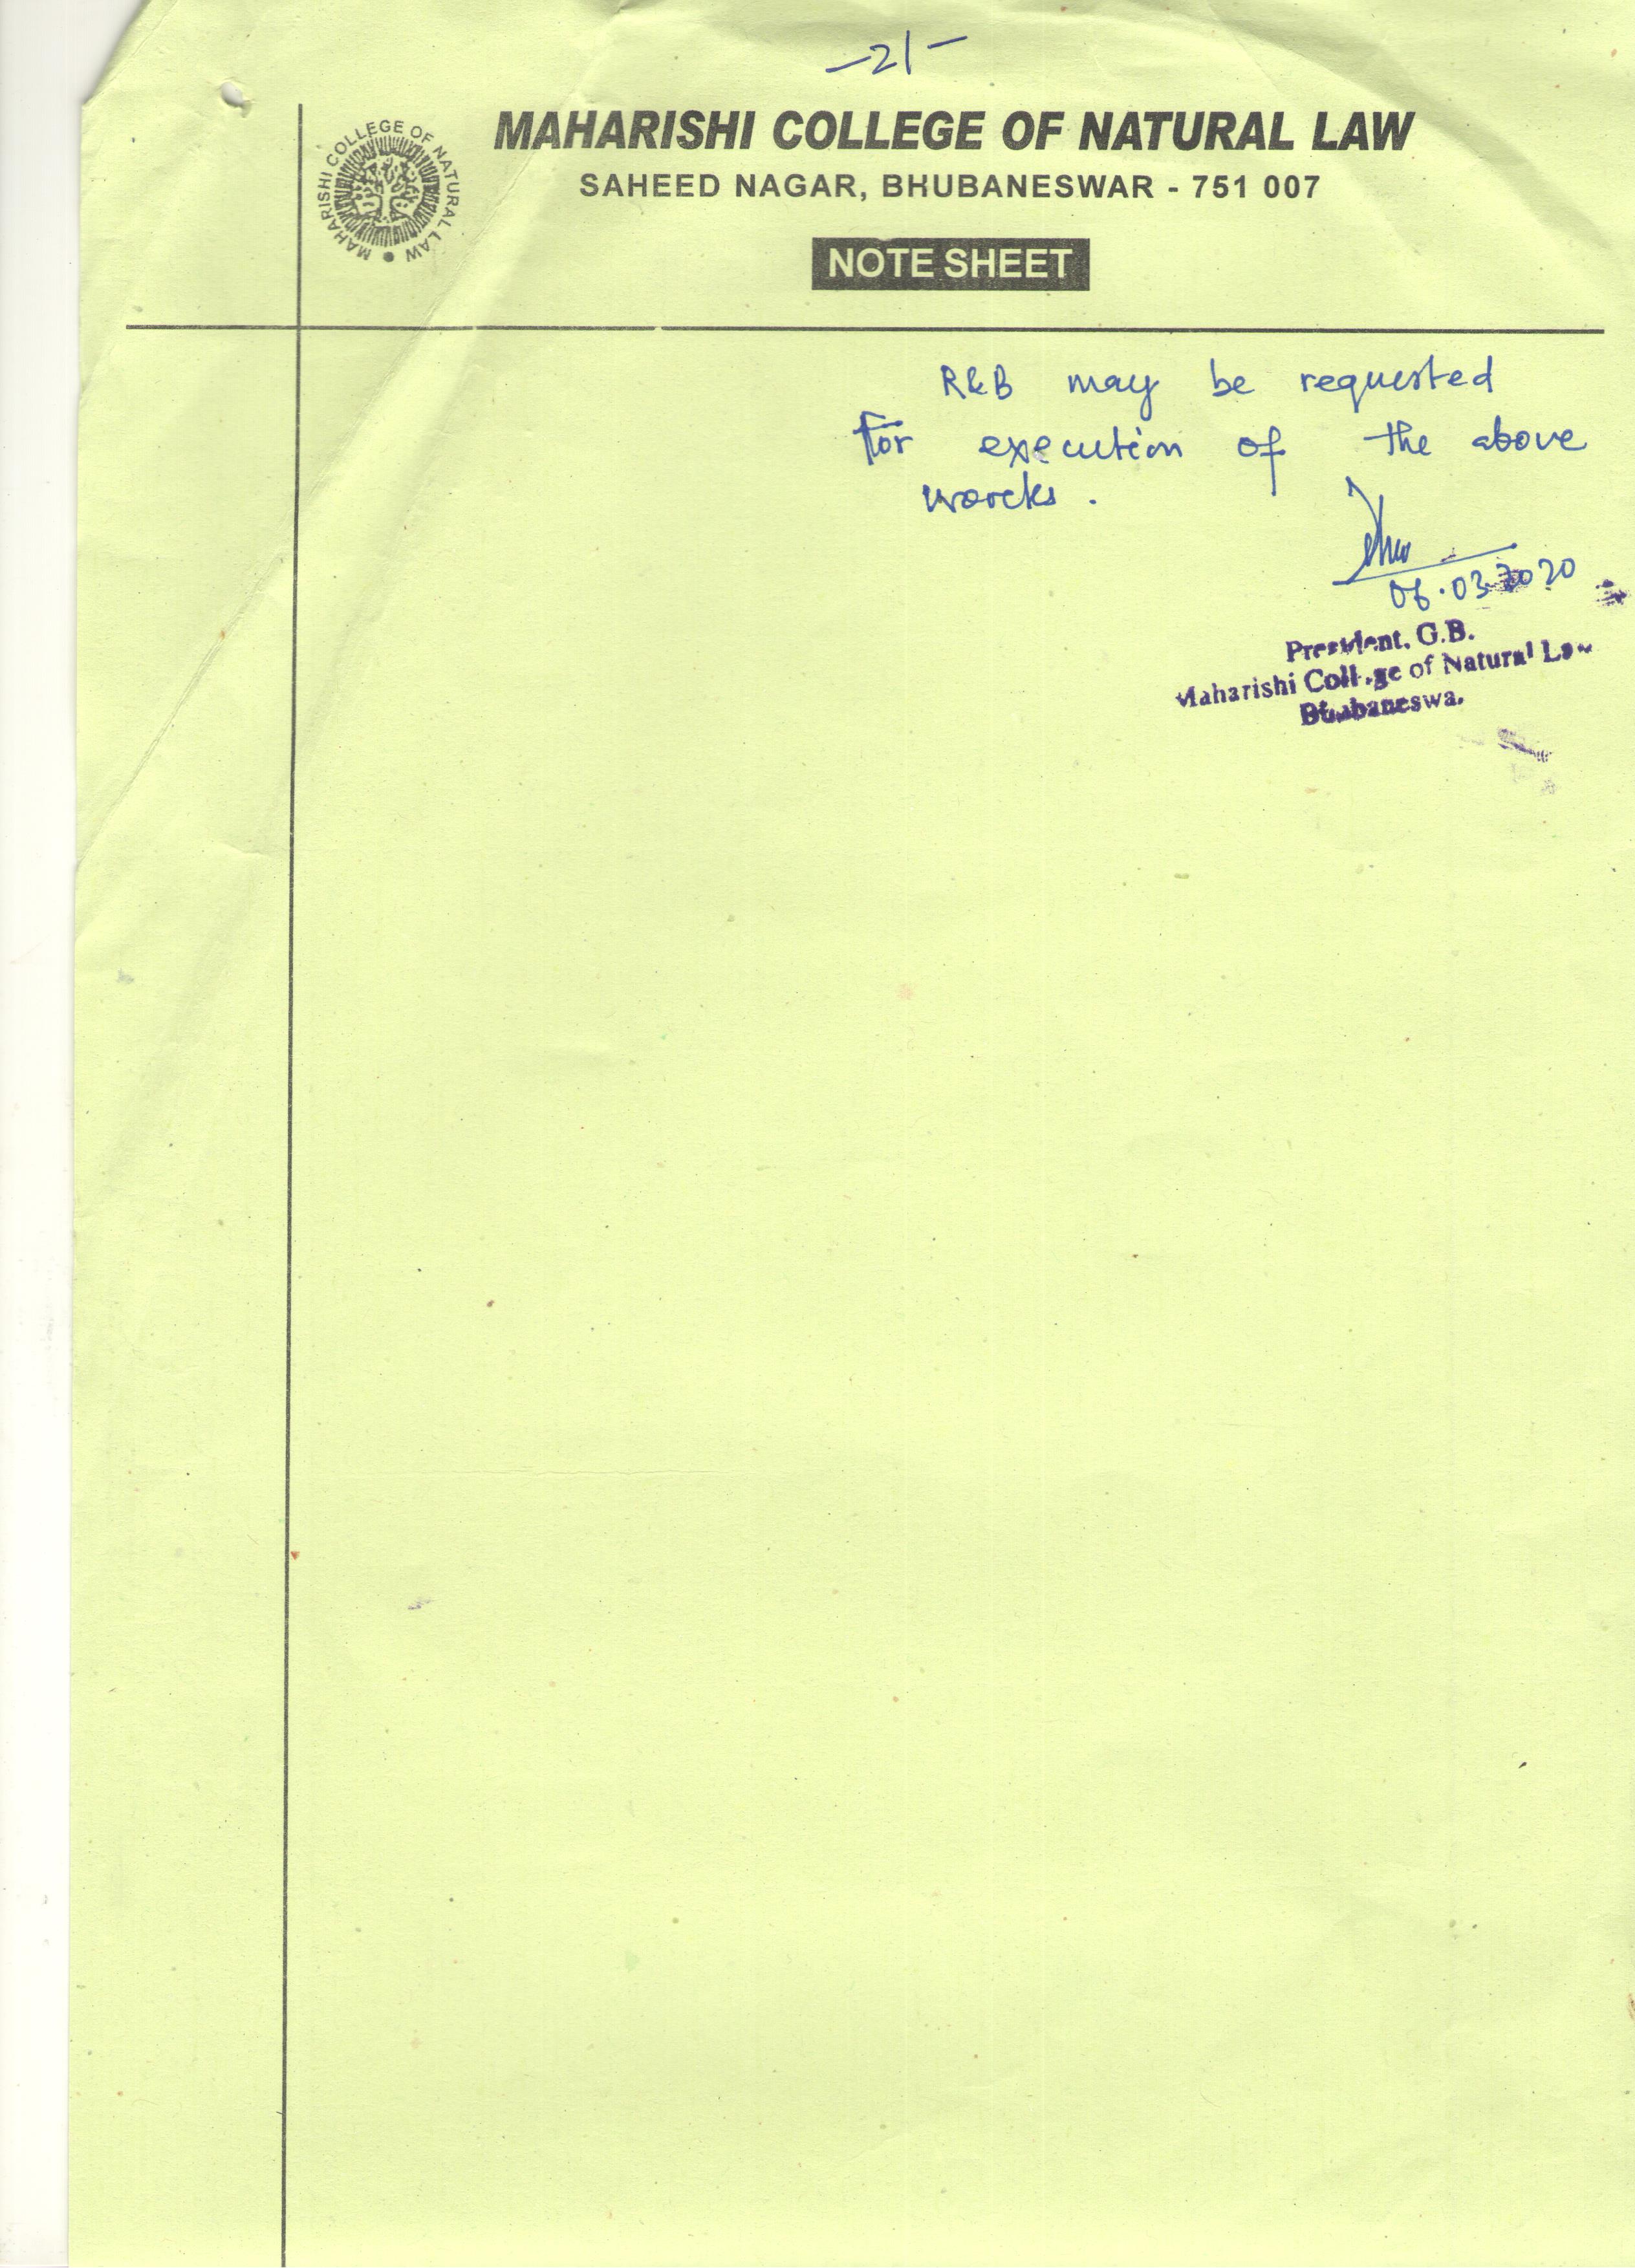 -21-
MAHARISHI COLLEGE OF NATURAL LAW
MAHARISHI COLLEGE OF NATURAL LAW
SAHEED NAGAR, BHUBANESWAR - 751 007
NOTE SHEET
R&B may be requested
For execution of the above
worcks.
06.03.2020
President, G.B.
Maharishi College of Natural Law
Bhubaneswa.